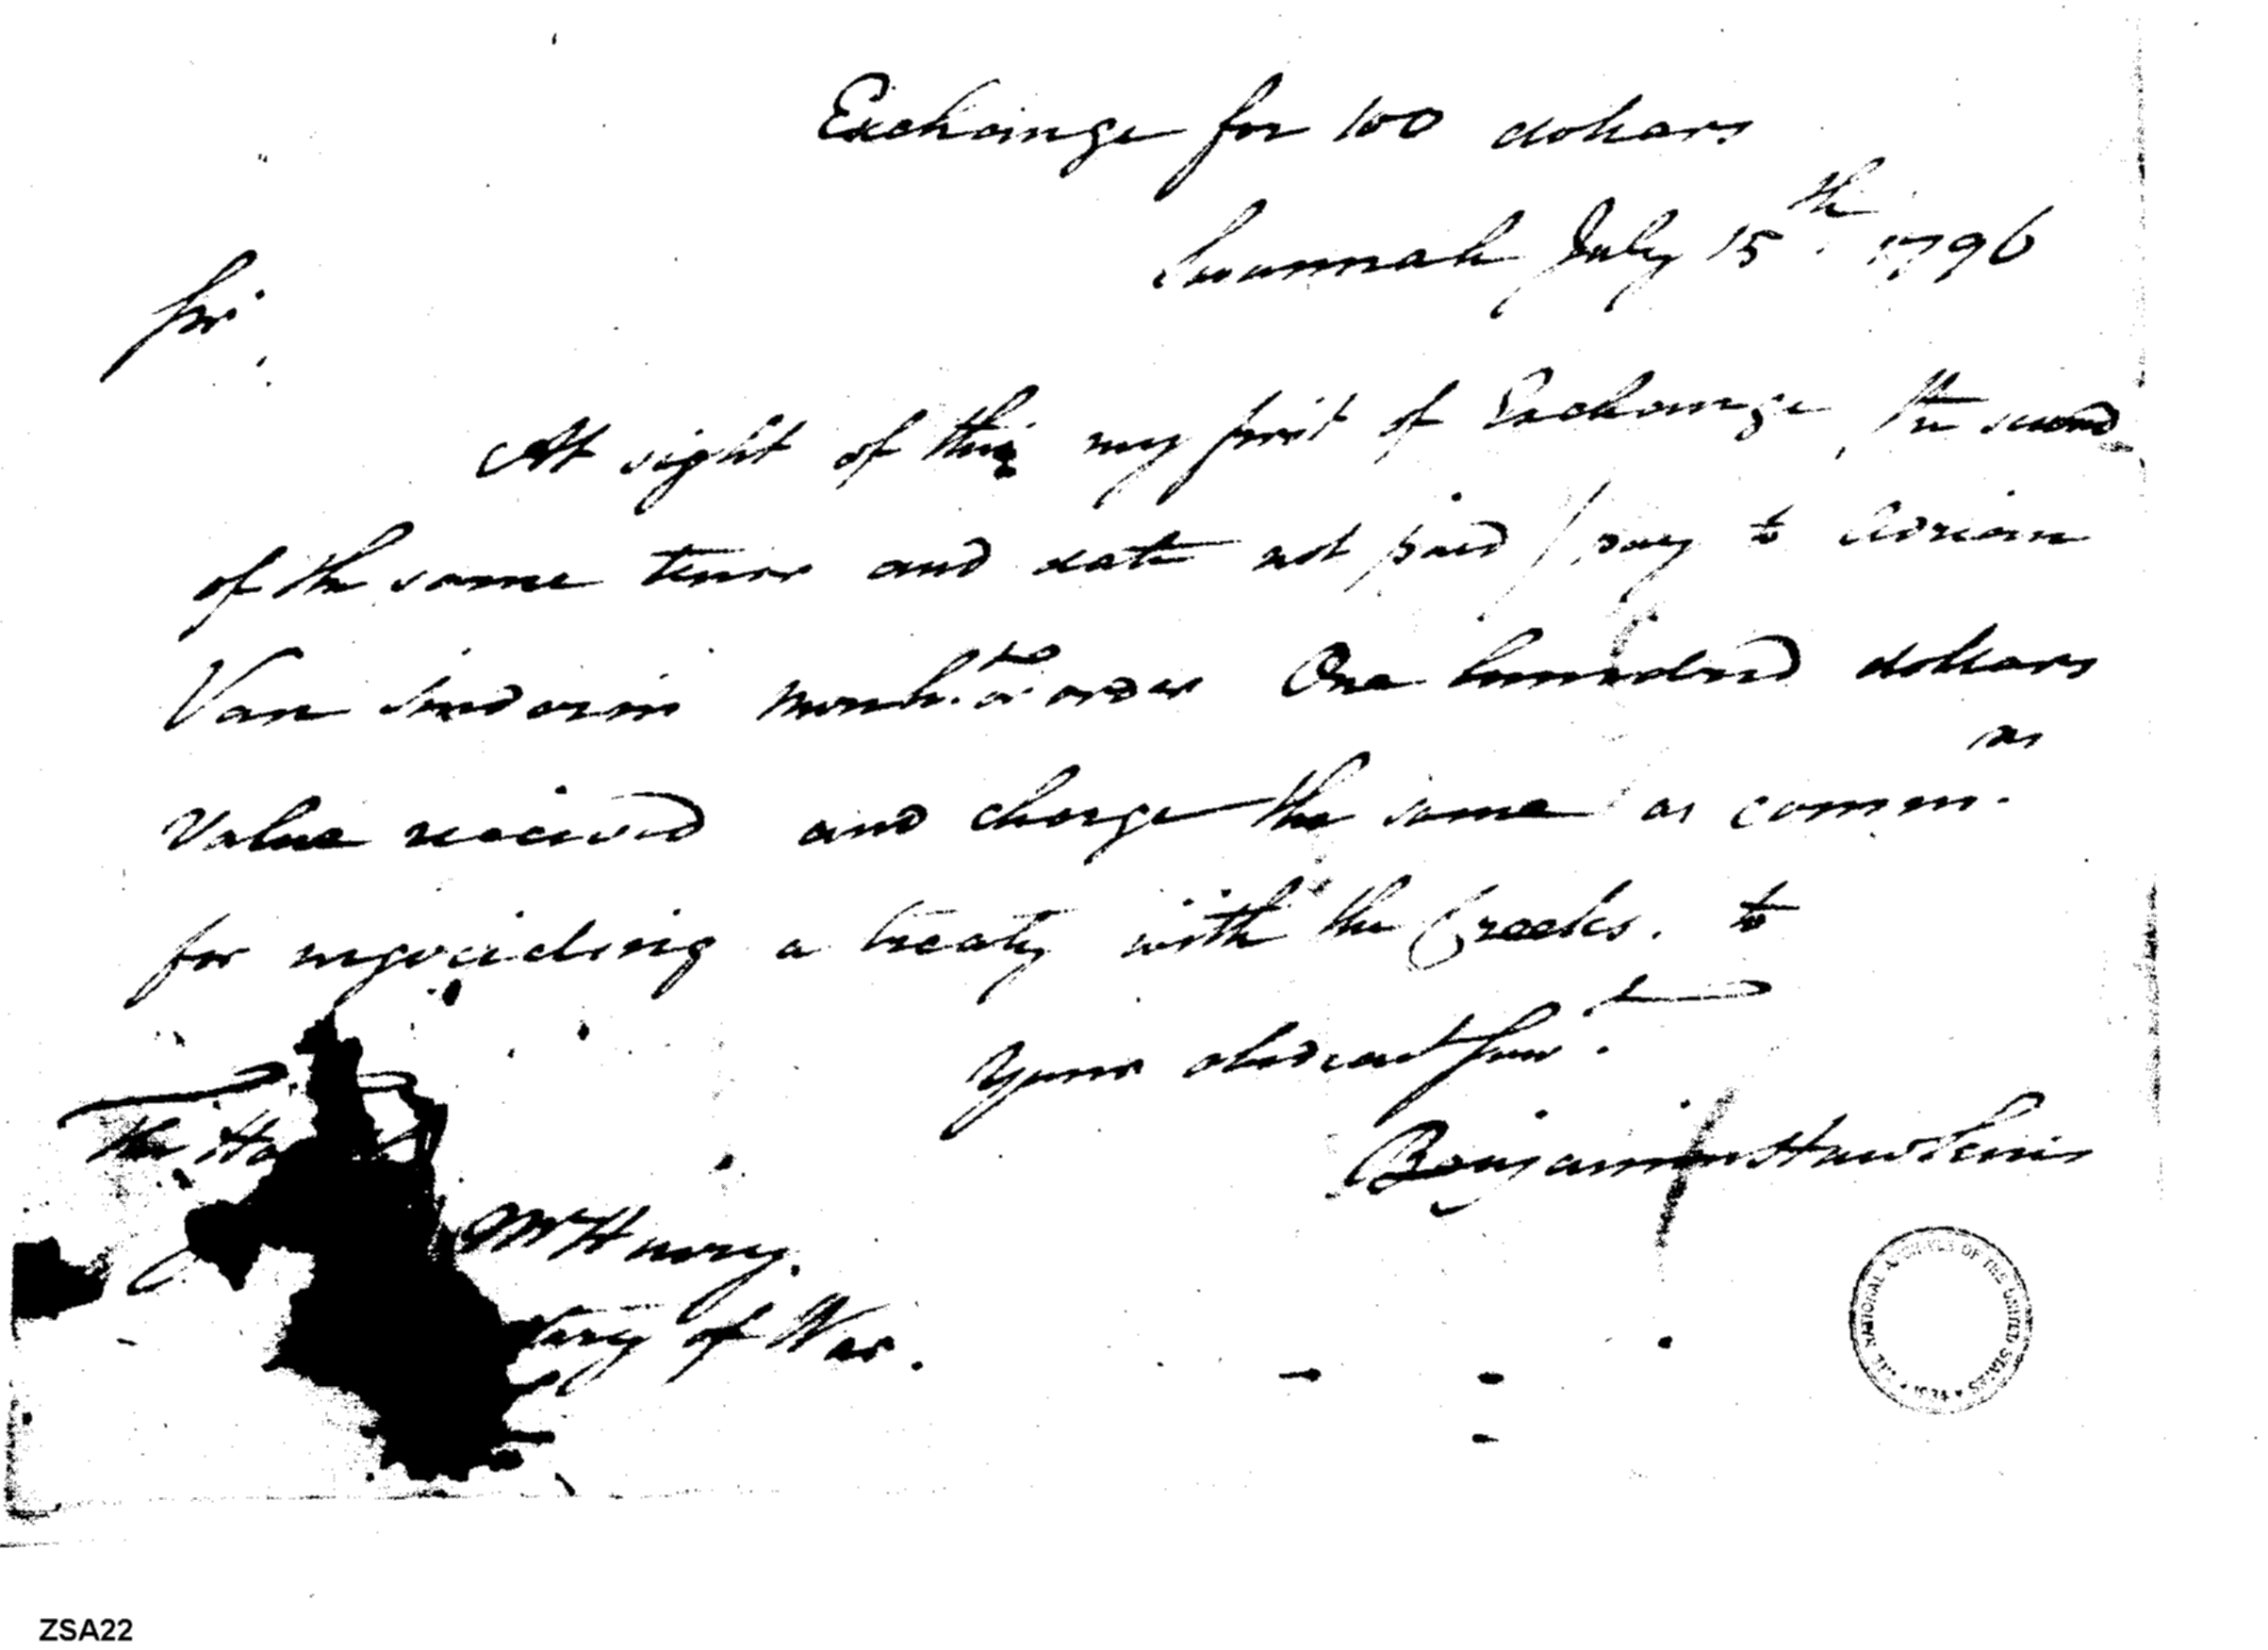 Exchange for 100 dollars
Savannah July 15th. 1796
Sir.
At sight of this my first of Exchange, the second
of the same tenor and date not paid / pay to Adrian
Van Sindorin or order One hundred dollars
Value received and charge the same as commr
for negociating a treaty with the Creeks. to
Your obedient servt.
Benjamin Hawkins
The Ho
McHenry
tary of War.
NATIONAL ARCHIVES OF THE UNITED STATES
ZSA22